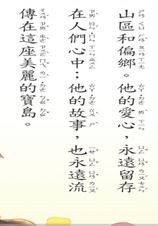 山區和偏鄉。他的愛心，永遠留存
在人們心中；他的故事，也永遠流
傳在這座美麗的寶島。